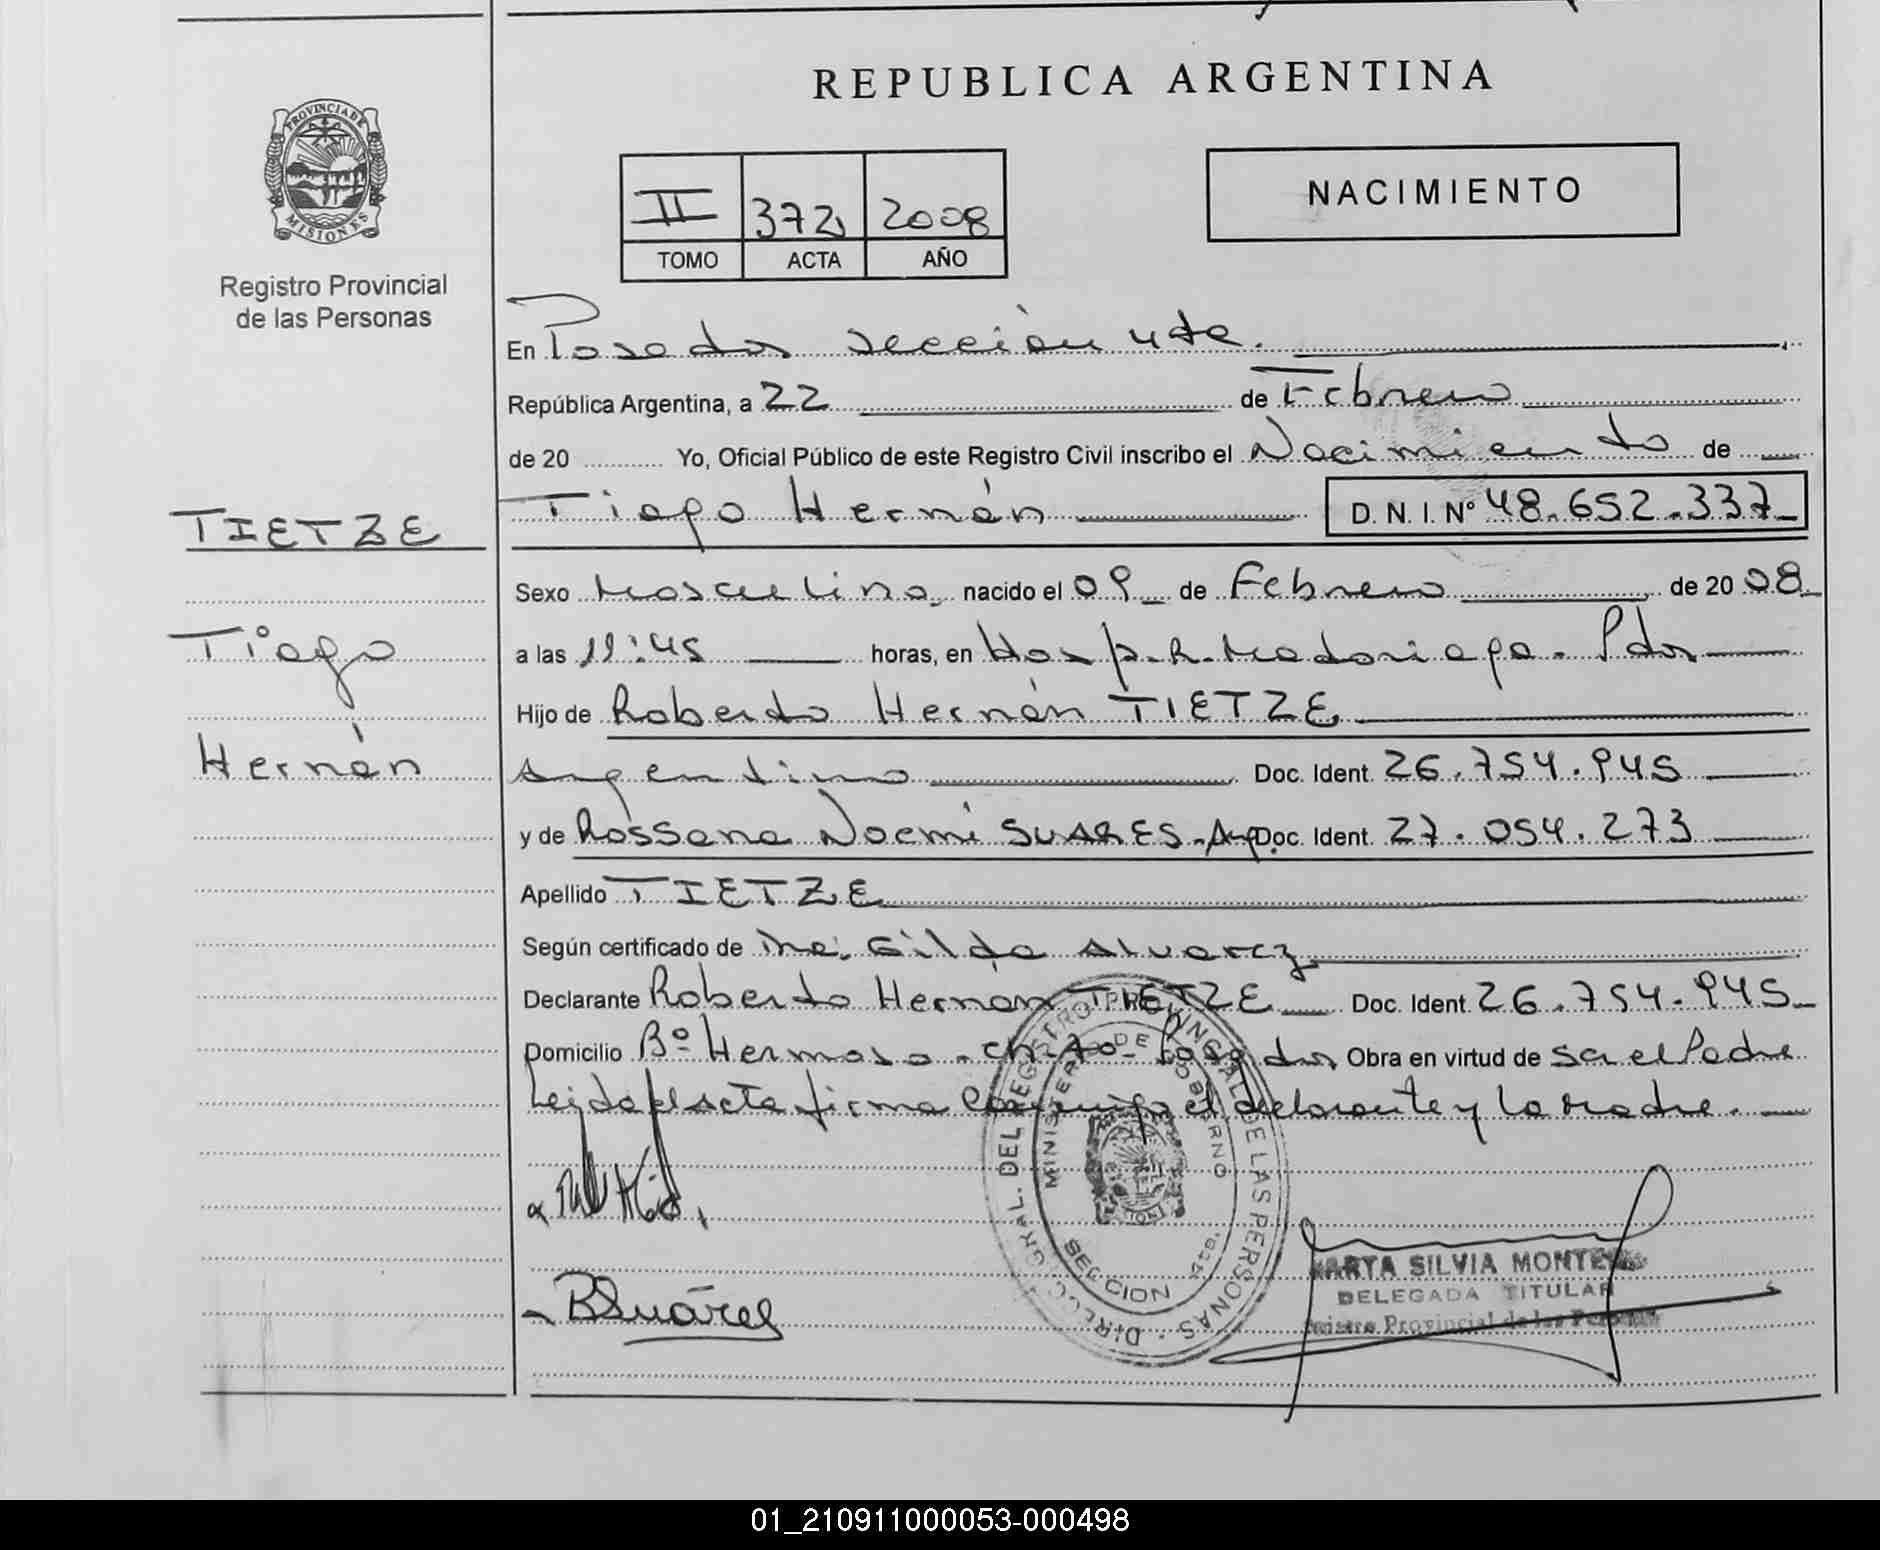 REPUBLICA ARGENTINA
PROVINCIA DE
MISIONES
Registro Provincial
de las Personas
II 372 2008
TOMO ACTA AÑO
NACIMIENTO
En Posadas sección 4ta.
República Argentina, a 22 de Febrero
de 20 Yo, Oficial Público de este Registro Civil inscribo el Nacimiento de
Tiago Hernán D. N. I. Nº 48.652.337
TIETZE
Tiago
Hernán
Sexo Masculino, nacido el 09 de Febrero de 20 08
a las 11:45 horas, en Hosp. R. Madariaga - Pdas
Hijo de Roberto Hernán TIETZE
Argentino Doc. Ident. 26.754.945
y de Rossana Noemí SUARES - Arg. Doc. Ident. 27.054.273
Apellido TIETZE
Según certificado de Gilda Alvarez
Declarante Roberto Hernan TIETZE Doc. Ident. 26.754.945
Domicilio Bº Hermoso - Posadas Obra en virtud de ser el Padre
Leida el acta firma conmigo el declarante y la madre.
DIRECC. GRAL. DEL REGISTRO PROVINCIAL DE LAS PERSONAS
MINISTERIO DE GOBIERNO
SECCION 4ta.
BSuárez
MARTA SILVIA
DELEGADA TITULAR
Registro Provincial de las Personas
01_210911000053-000498